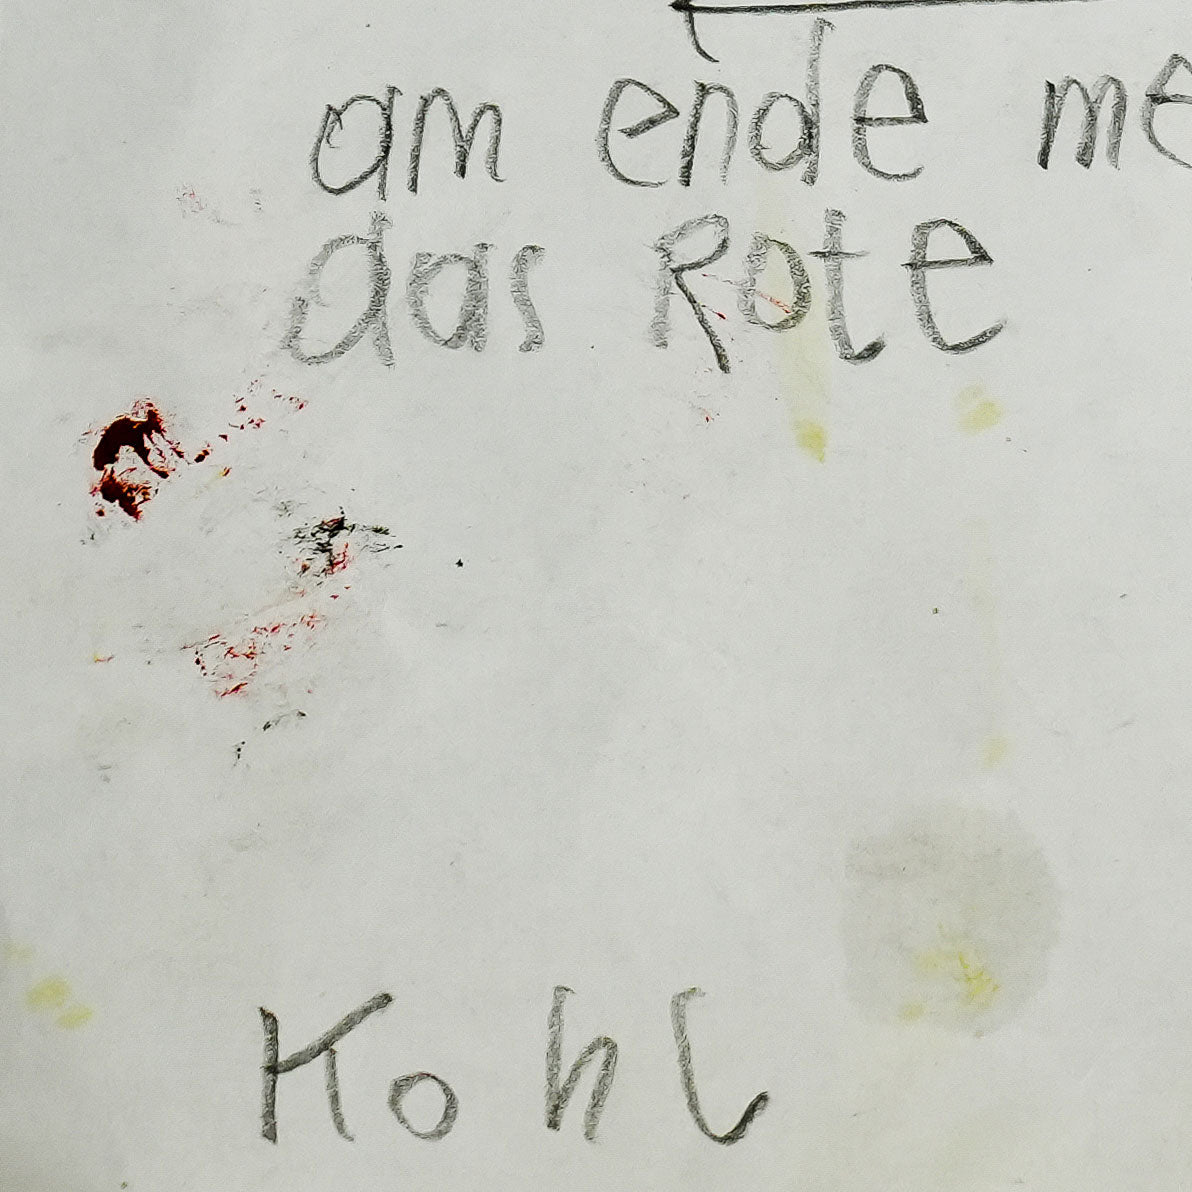 am ende me
das Rote
Kohl